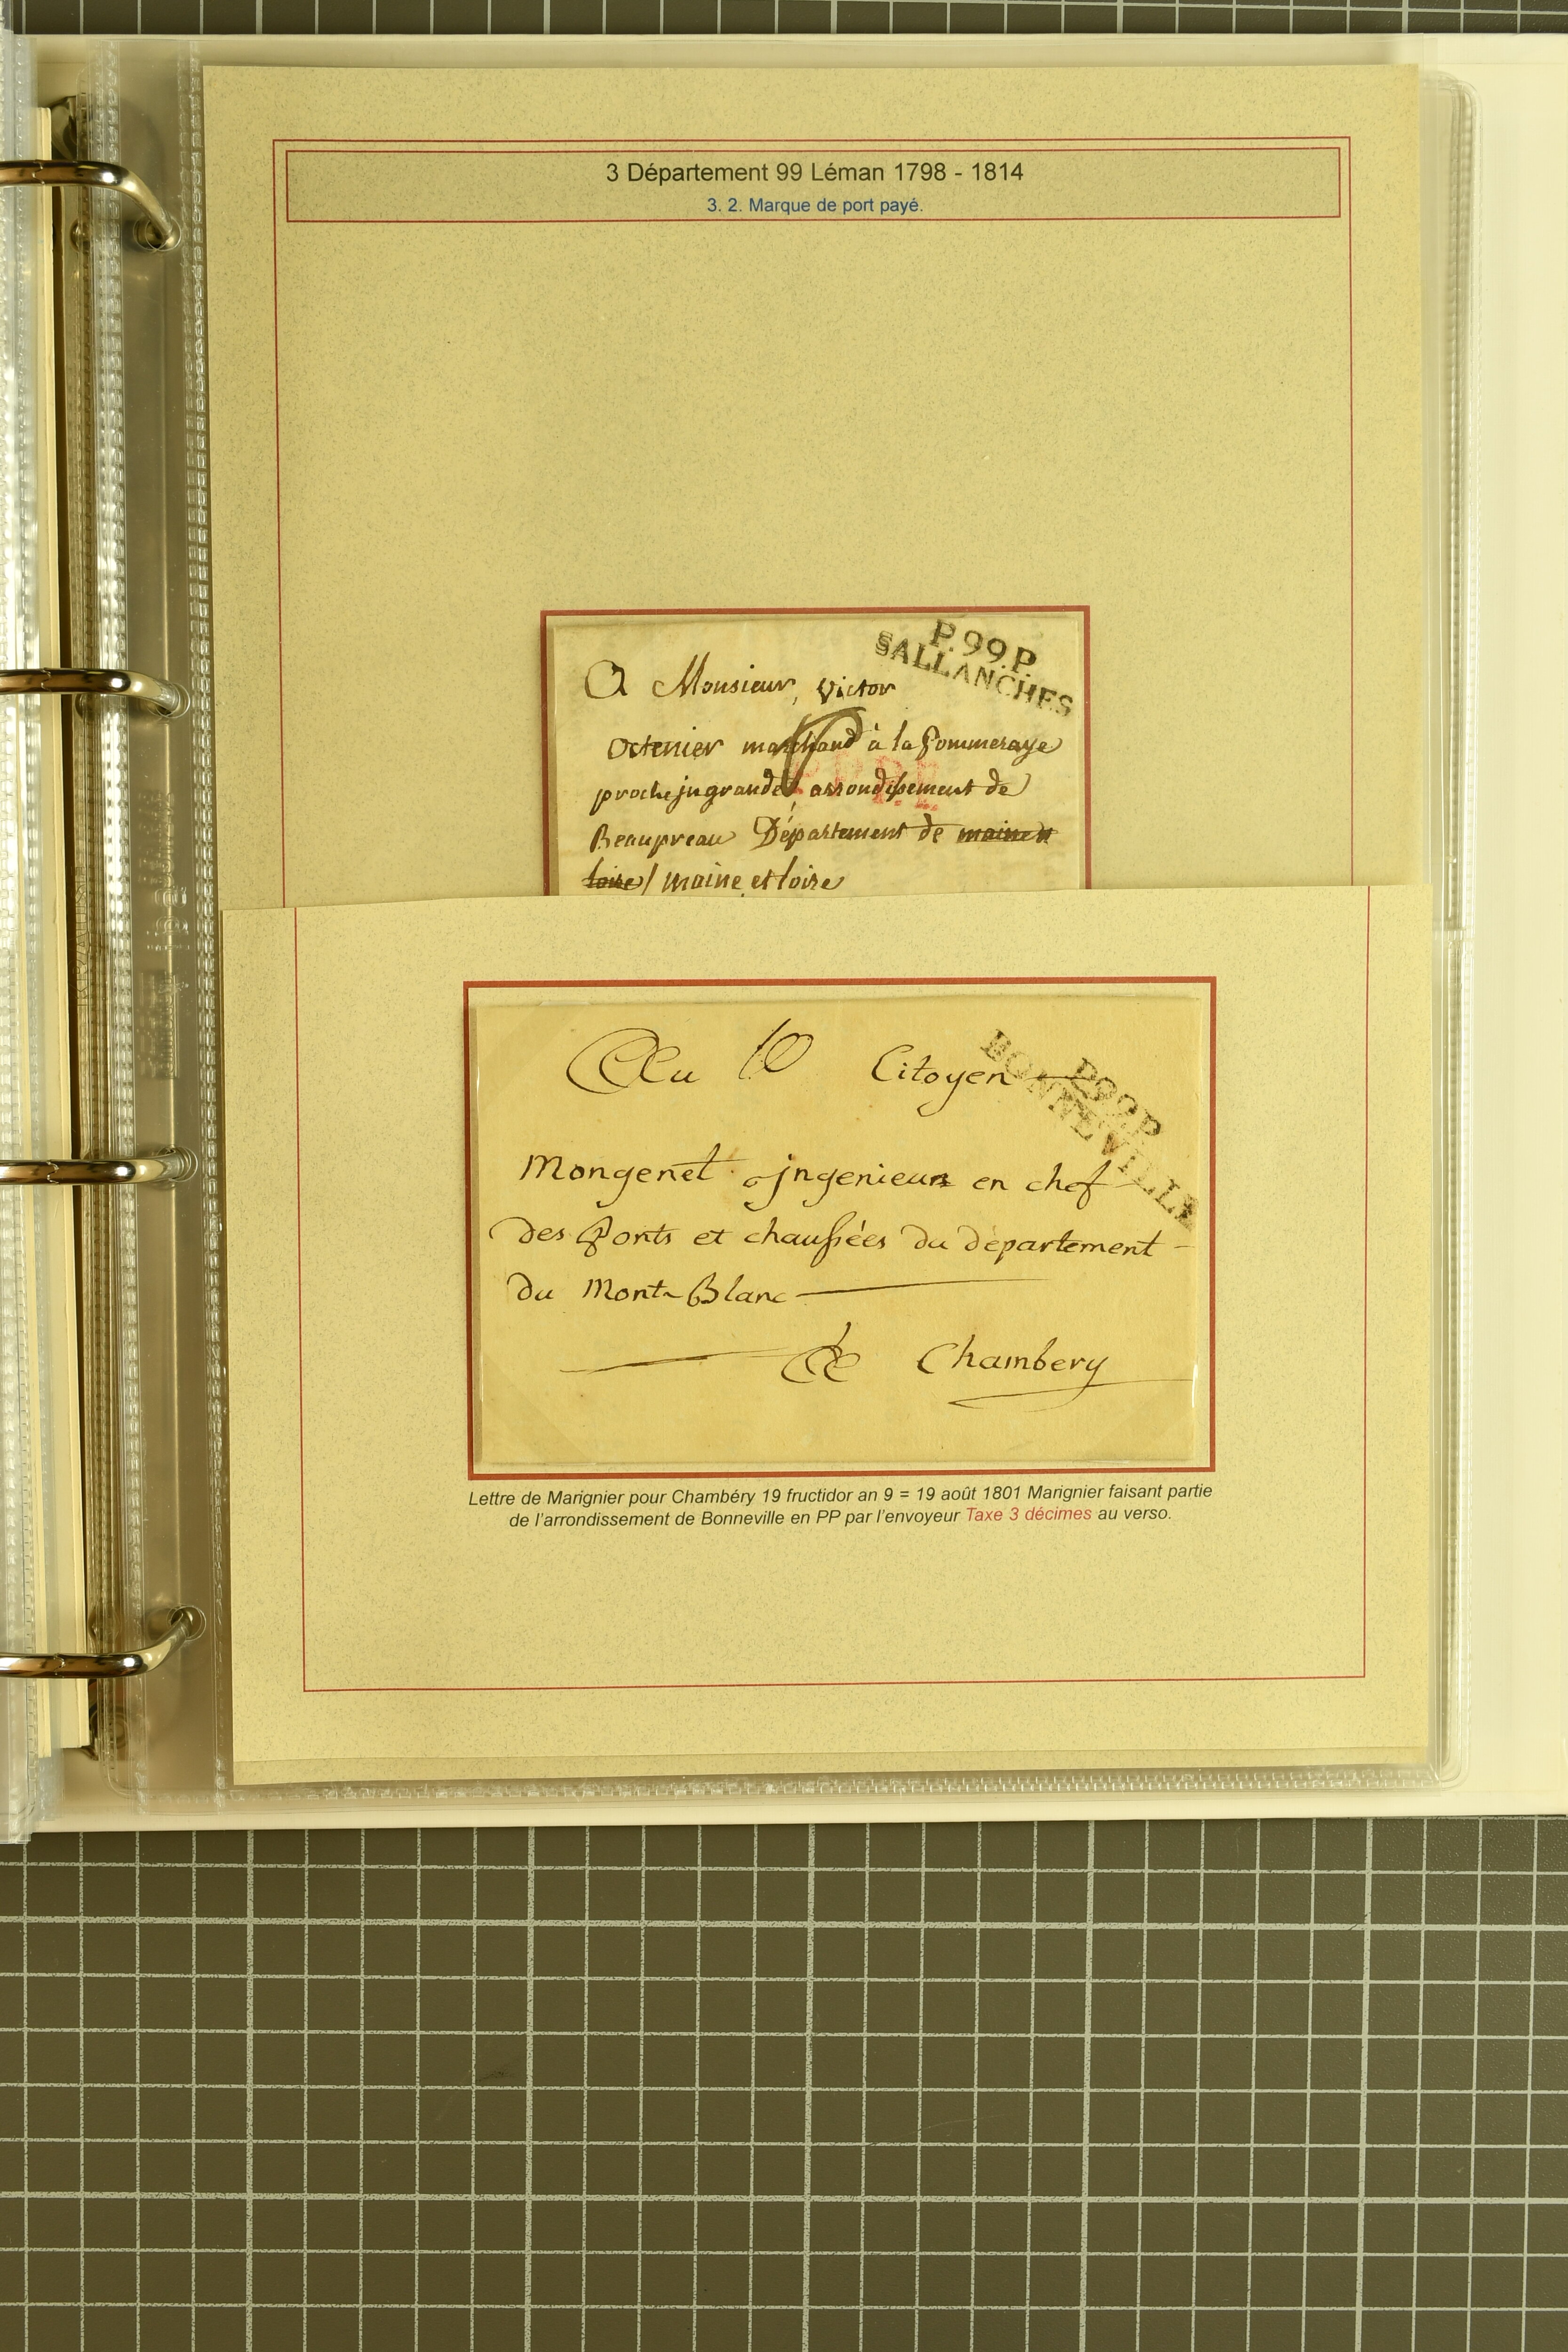 3 Département 99 Léman 1798 - 1814
3. 2. Marque de port payé.
P.99.P.
SALLANCHES
A Monsieur, Victor
octenier marchand à la Pommeraye
proche jngrande, arrondissement de
Beaupreau Département de maine et
loire / maine et loire
P99P
BONNEVILLE
Au Citoyen
Mongenet jngenieur en chef
des Ponts et chaussées du département
du Mont-Blanc
à Chambery
Lettre de Marignier pour Chambéry 19 fructidor an 9 = 19 août 1801 Marignier faisant partie
de l'arrondissement de Bonneville en PP par l'envoyeur Taxe 3 décimes au verso.